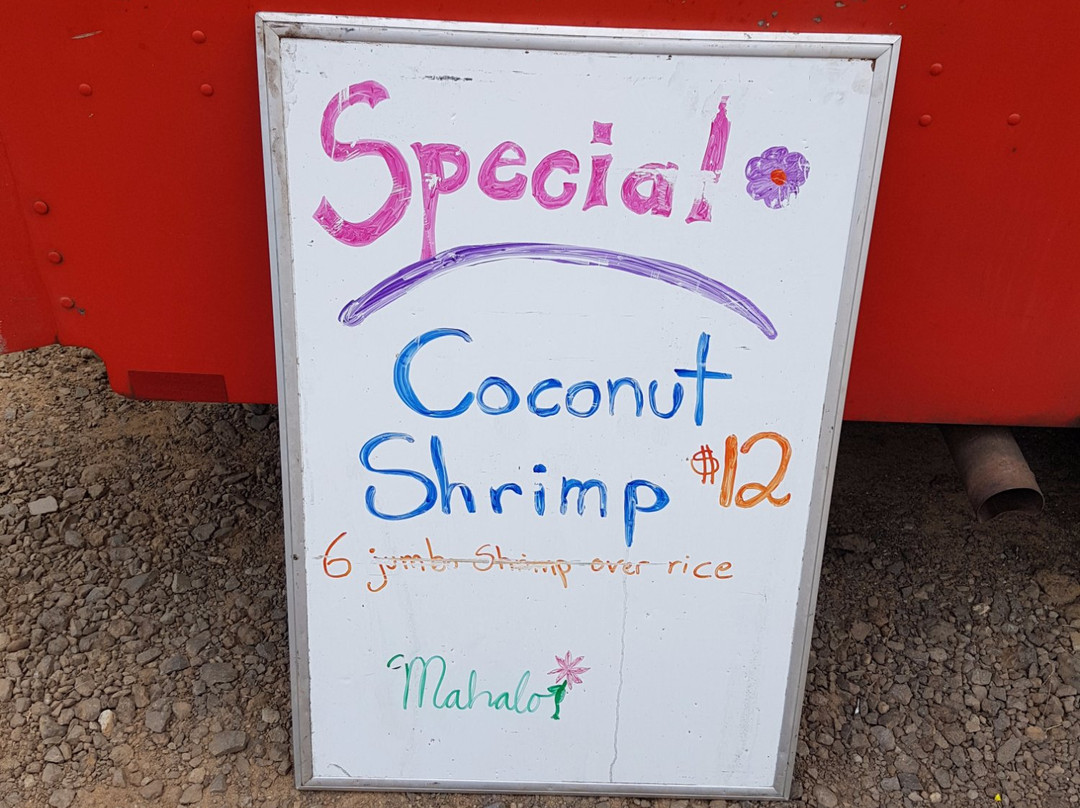 Special
Coconut
Shrimp $12
6 jumbo Shrimp over rice
Mahalo